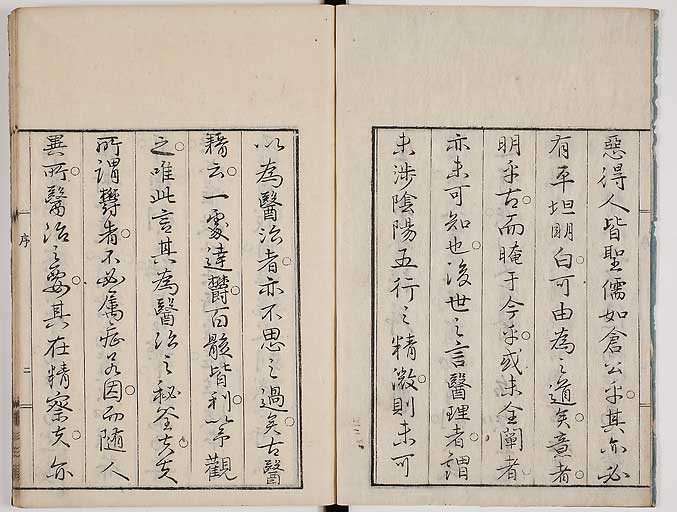 惡得人皆聖儒如倉公乎其亦必
有平坦明白可由為之道矣意者
明乎古而晻于今乎或未全闡者
亦未可知也後世之言醫理者謂
未涉陰陽五行之精微則未可
以為醫治者亦不思之過矣古醫
籍云一處達欝百骸皆利等觀
之唯此言其為醫治之秘筌夫夫
所謂欝者不必屬症各因而隨人
異所醫治之要其在精察夫亦
序
二